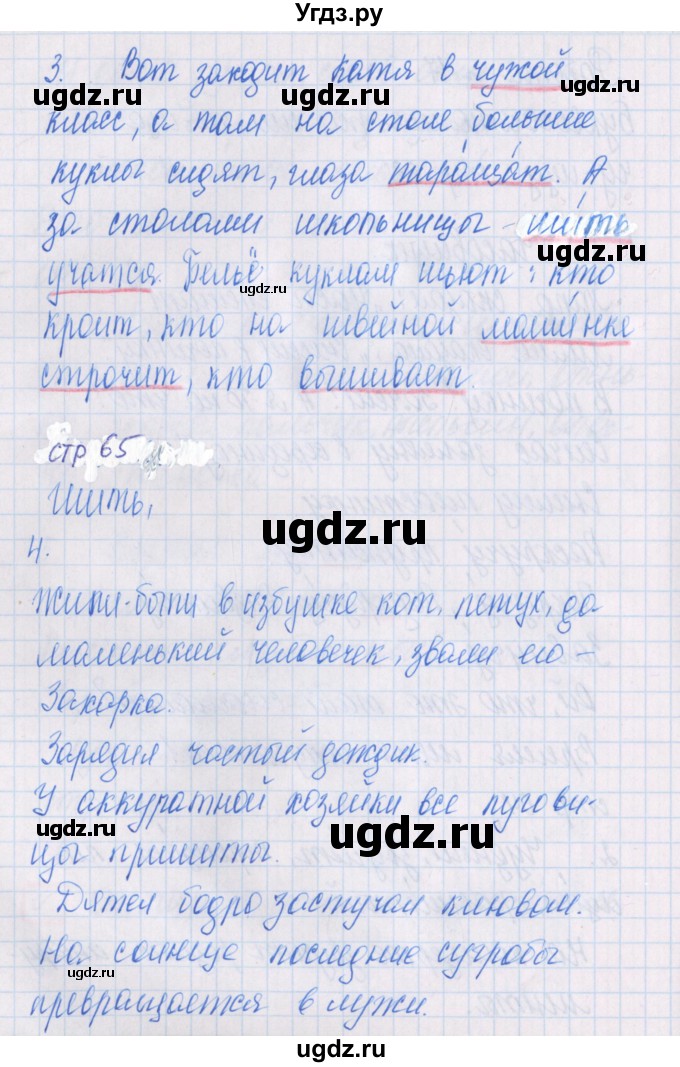 Угдз.ру
3. Вот заходит Катя в чужой
ugdz.ru ugdz.ru
класс, а там на столе большие
куклы сидят, глаза тара́ща́т. А
за столами школьницы - ши́ть
ugdz.ru
учатся. Бельё куклам шьют: кто
ugdz.ru
кроит, кто на швейной маши́нке
строчит, кто вышивает.
ugdz.ru ugdz.ru
стр 65
Шить,
ugdz.ru
4.
Жили-были в избушке кот, петух, да
маленький человечек, звали его -
ugdz.ru ugdz.ru
Захарка.
Зарядил частый дождик.
У аккуратной хозяйки все пугови-
ugdz.ru
цы пришиты.
Дятел бодро застучал клювом.
ugdz.ru ugdz.ru
На солнце последние сугробы
ugdz.ru
превращается в лужи.
ugdz.ru